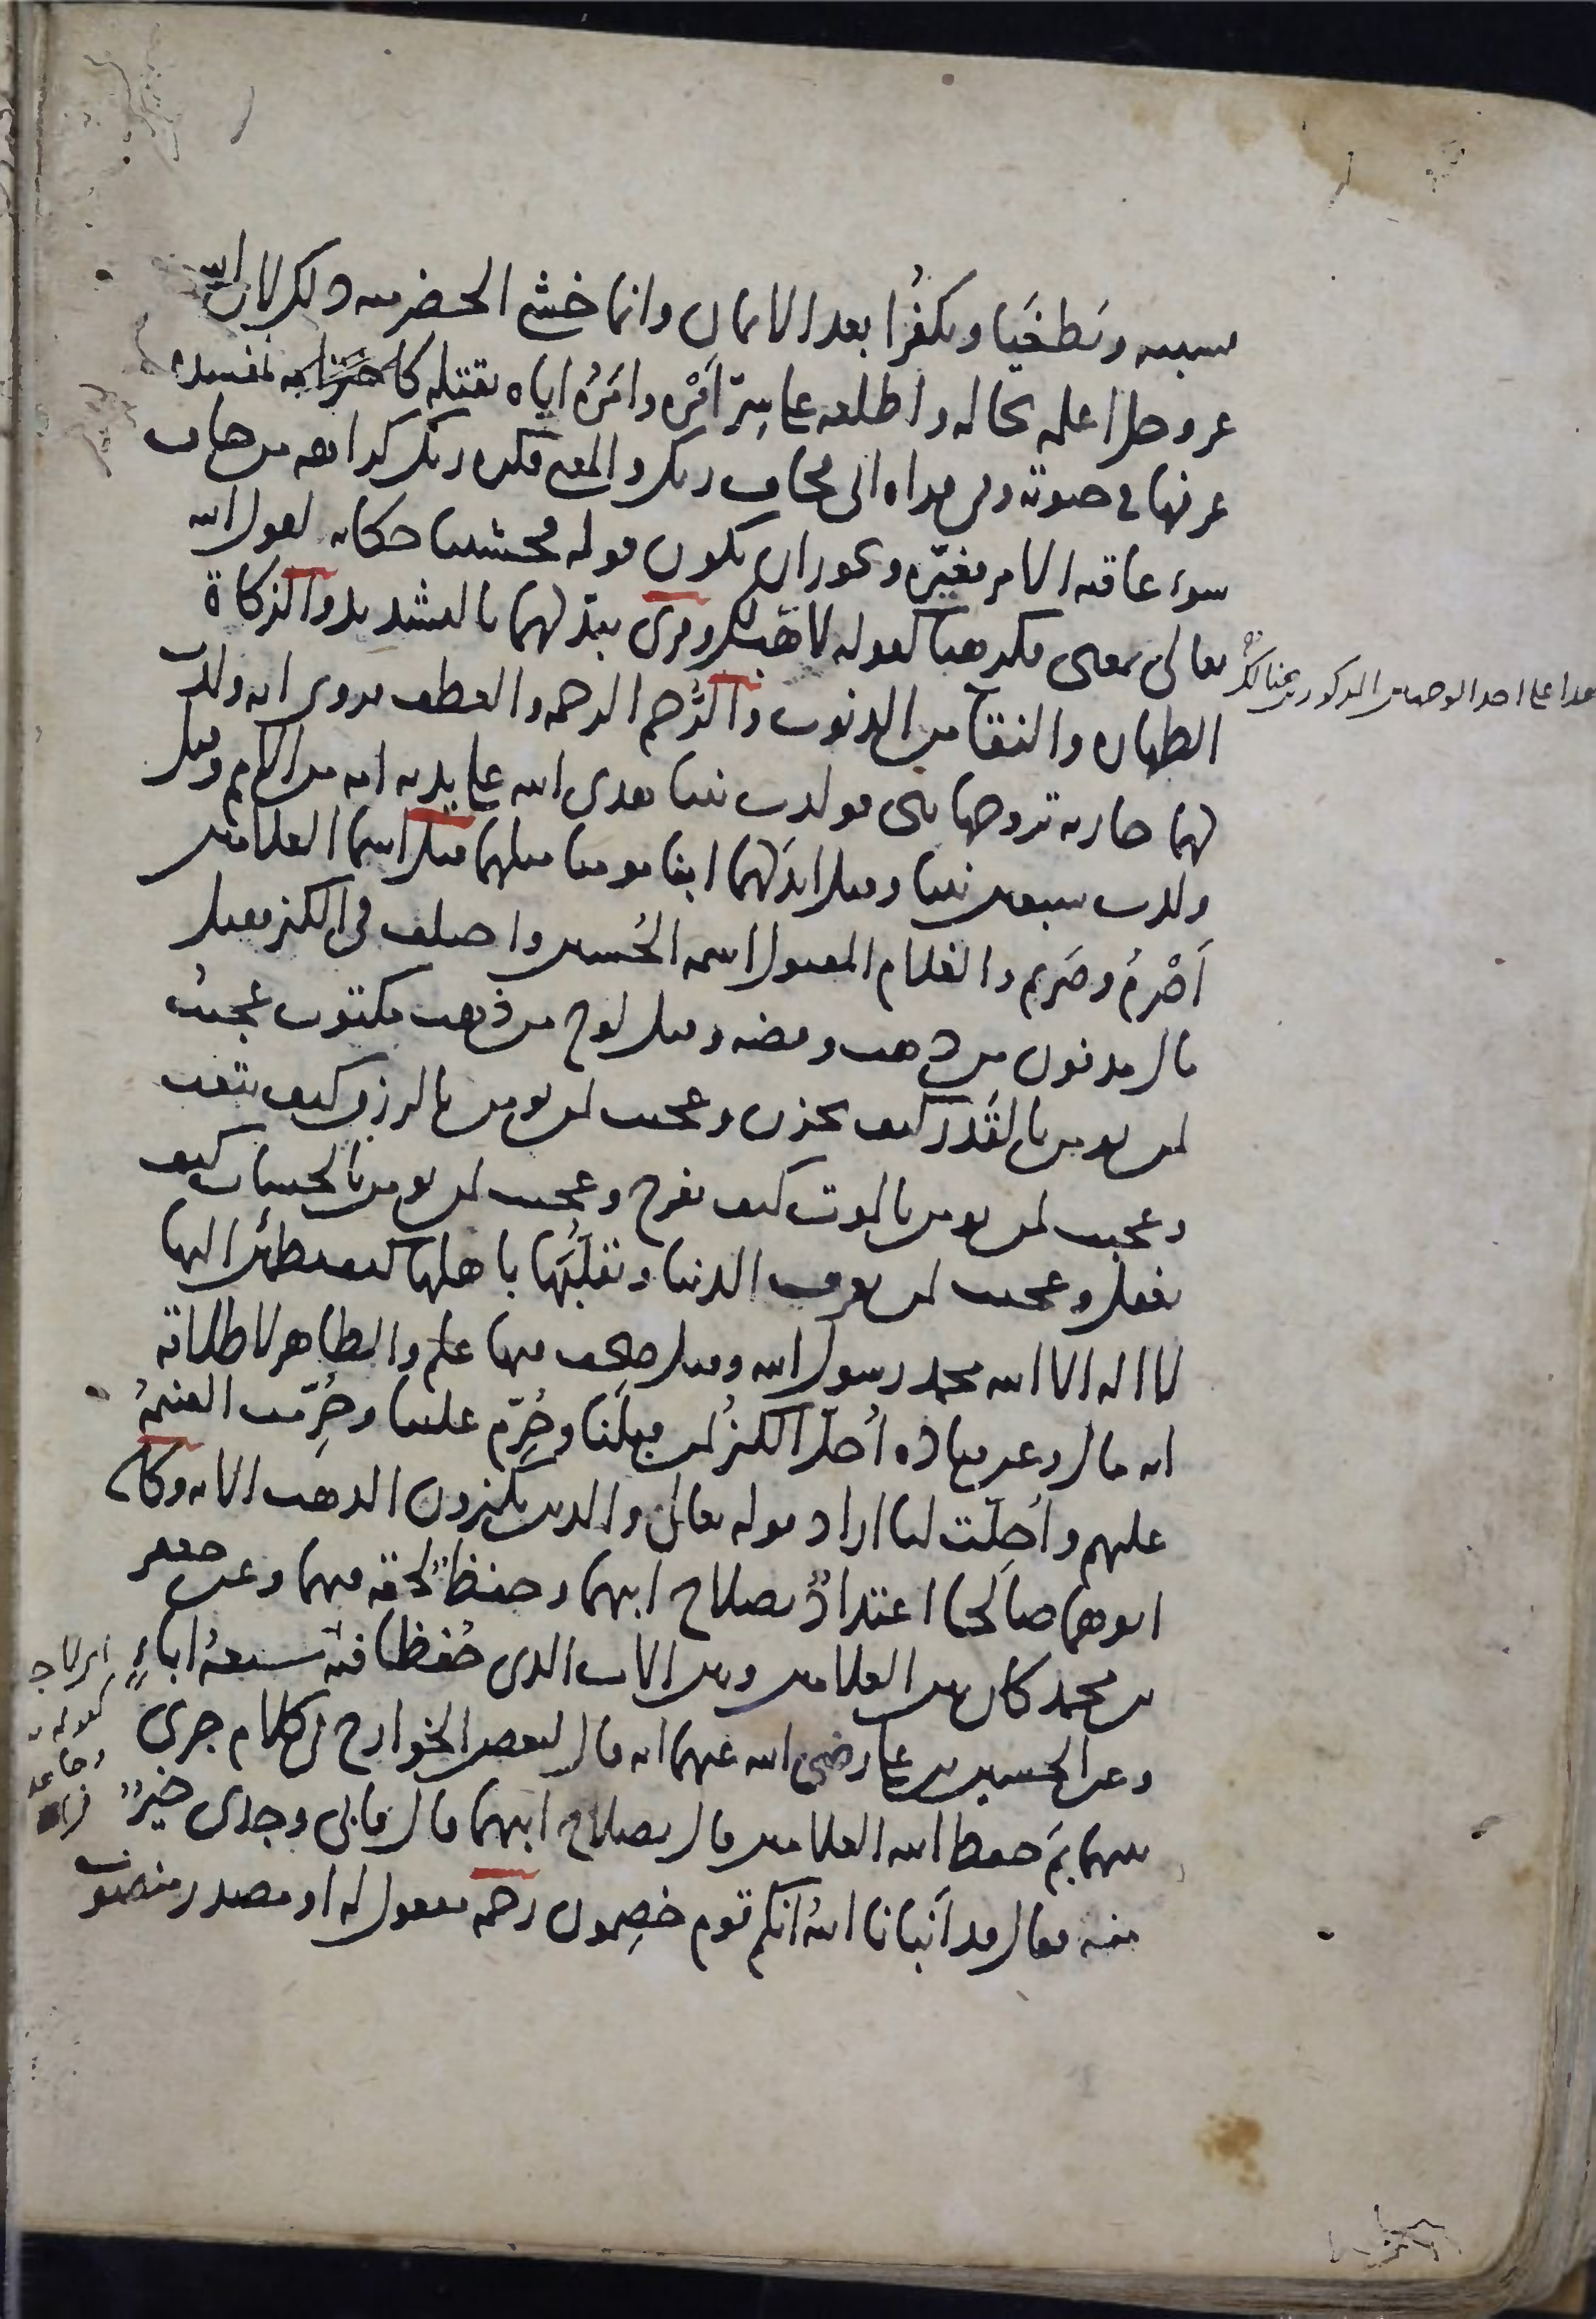 بسببه ويطغيا ويكفرا بعد الايمان وانما خشي الخضر منه ذلك لان الله
عز وجل اعلمه بحاله واطلعه على سرّ امره وامَرُه اياه بقتله كاخترامه لمفسدة
عرفها في حيوته وفي قراه ابي فخاف ربك والمعنى فكره ربك كراهه من خاف
سوء عاقبه الامر فغيّره ويجوز ان يكون قوله فخشينا حكايه لقول الله
تعالى بمعنى فكرهنا كقوله لاهب لك وقرئ يبدّلهما بالتشديد والزكاة
الطهاره والنقاء من الذنوب والرُّحم الرحمه والعطف وروى انه ولدت
لهما جاريه تزوجها نبي فولدت نبيا هدى الله على يديه امه من الامم وقيل
ولدت سبعين نبيا وقيل ابدَلهما ابنا مومنا مثلهما قيل اسما الغلامين
اَصْرمُ وصَريم والغلام المقتول اسمه الحُسين واختلف في الكنز فقيل
مال مدفون من ذهب وفضه وقيل لوح من ذهب مكتوب عجبتُ
لمن يومن بالقَدَر كيف يحزن وعجبت لمن يومن بالرزق كيف يتعب
وعجبت لمن يومن بالموت كيف يفرح وعجبت لمن يومن بالحساب كيف
يغفل وعجبت لمن يعرف الدنيا وتقلُّبَها باهلها كيف يطمئن اليها
لا اله الا الله محمد رسول الله وقيل صحف فيها علم والظاهر لاطلاقه
انه مال وعن قتاده اُحلّ الكنزُ لمن قبلَنا وحُرِّم علينا وحُرِّمت الغنيمةُ
عليهم واُحِلّت لنا اراد قوله تعالى والذين يكنزون الذهب الايه وكان
ابوهما صالحا اعتدادٌ بصلاح ابيهما وحفظٌ لحقه فيهما وعن جعفر
بن محمد كان بين الغلامين وبين الاب الذي حُفظا فيه سبعهُ اباءٍ
وعن الحسين بن علي رضي الله عنهما انه قال لبعض الخوارج في كلام جرى
بينهما بمَ حفظ الله الغلامين قال بصلاح ابيهما قال فابي وجدى خيرٌ
منه فقال قد اَنبانا اللهُ انكم قوم خصِمون رحمه مفعول له او مصدر منصوب